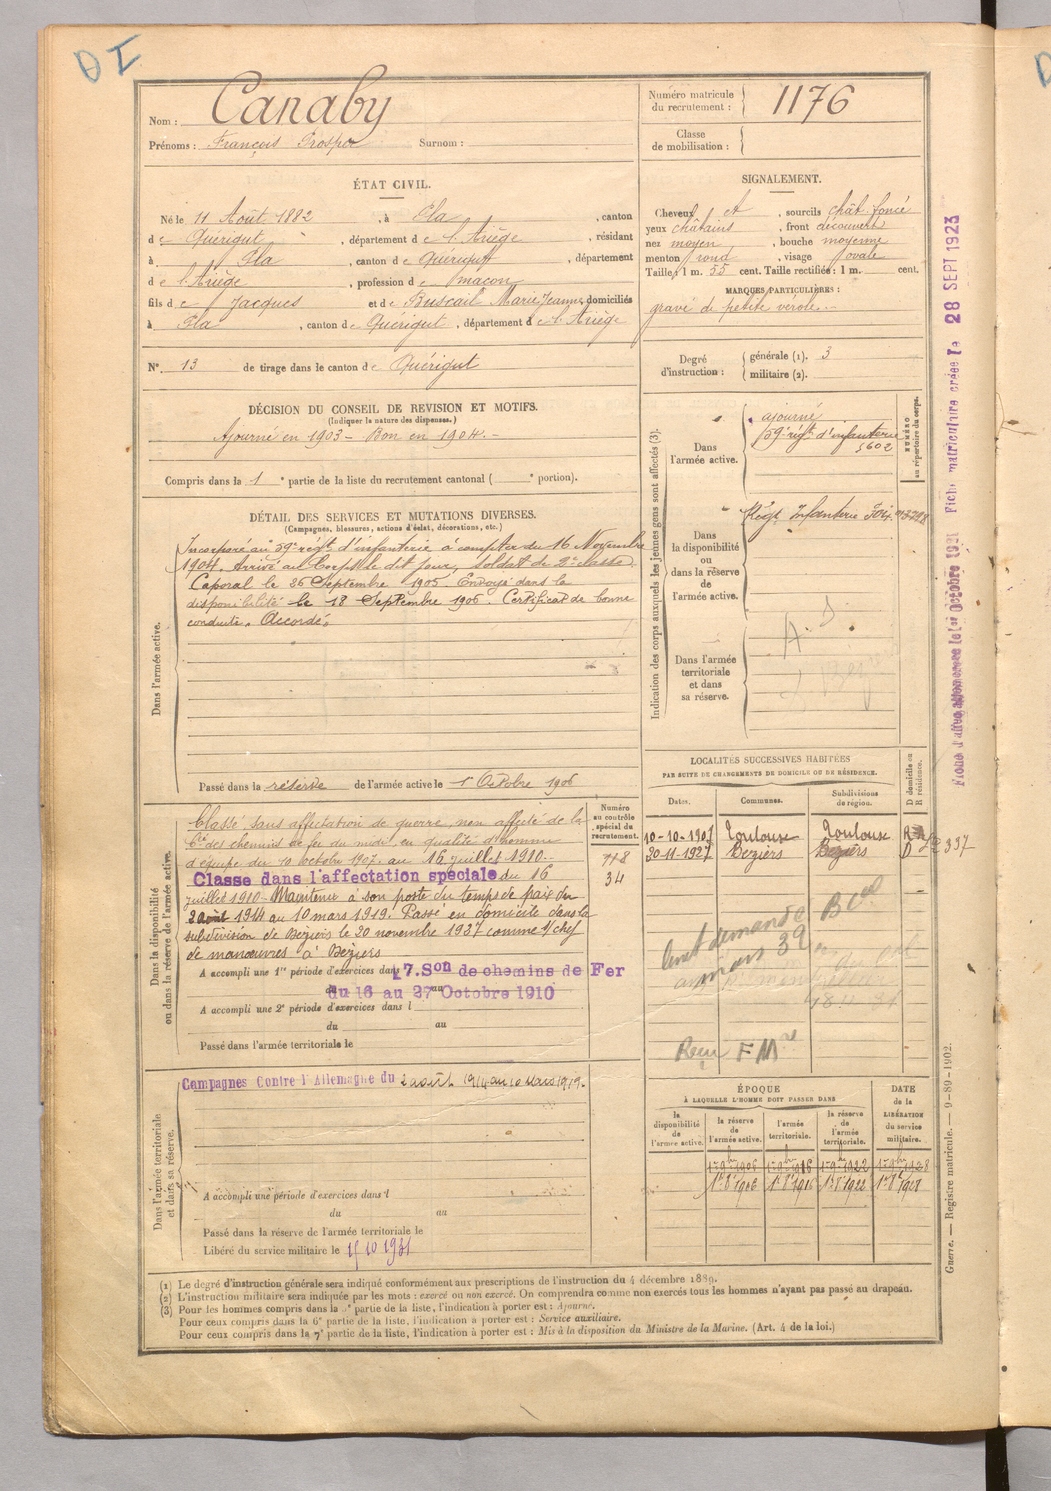 DI
Nom : Canaby
Prénoms : François Prosper Surnom :
Numéro matricule du recrutement : 1176
Classe de mobilisation :
ÉTAT CIVIL.
Né le 11 Août 1882, à Pla, canton
de Quérigut, département de l'Ariège, résidant
à Pla, canton de Quérigut, département
de l'Ariège, profession de maçon
fils de Jacques et de Buscail Marie Jeanne, domiciliés
à Pla, canton de Quérigut, département de l'Ariège
N° 13 de tirage dans le canton de Quérigut
SIGNALEMENT.
Cheveux et, sourcils chât. foncé
yeux châtains, front découvert
nez moyen, bouche moyenne
menton rond, visage ovale
Taille : 1 m. 55 cent. Taille rectifiée : 1 m. cent.
MARQUES PARTICULIÈRES :
gravé de petite vérole.
Degré d'instruction : générale (1). 3
militaire (2).
DÉCISION DU CONSEIL DE REVISION ET MOTIFS.
(Indiquer la nature des dispenses.)
Ajourné en 1903 - Bon en 1904.-
Compris dans la 1e partie de la liste du recrutement cantonal ( e portion).
DÉTAIL DES SERVICES ET MUTATIONS DIVERSES.
(Campagnes, blessures, actions d'éclat, décorations, etc.)
Dans l'armée active.
Incorporé au 59e régt d'infanterie à compter du 16 Novembre
1904. Arrivé au Corps le dit jour, soldat de 2e classe.
Caporal le 26 Septembre 1905 Envoyé dans la
disponibilité le 18 Septembre 1906. Certificat de bonne
conduite. Accordé.
Passé dans la réserve de l'armée active le 1er Octobre 1906
Indication des corps auxquels les jeunes gens sont affectés (3).
NUMÉRO au répertoire du corps.
Dans l'armée active.
ajourné
59e régt d'infanterie
5602
Dans la disponibilité ou dans la réserve de l'armée active.
Régt Infanterie Foix
Dans l'armée territoriale et dans sa réserve.
LOCALITÉS SUCCESSIVES HABITÉES
PAR SUITE DE CHANGEMENTS DE DOMICILE OU DE RÉSIDENCE.
Dates. Communes. Subdivisions de région. D domicile ou R résidence.
10-10-1907 Toulouse Toulouse R
20-11-1927 Beziers Beziers D 337
Dans la disponibilité ou dans la réserve de l'armée active.
Numéro au contrôle spécial du recrutement.
748
34
Classé sans affectation de guerre, non affecté de la
Cie des chemins de fer du midi en qualité d'homme
d'équipe du 10 octobre 1907 au 16 juillet 1910.
Classe dans l'affectation spéciale du 16
juillet 1910 - Maintenu à son poste du temps de paix du
2 août 1914 au 10 mars 1919. Passé en domicile dans la
subdivision de Beziers le 20 novembre 1927 comme s/chef
de manœuvres à Beziers
A accompli une 1re période d'exercices dans l 7. Son de chemins de Fer
du 16 au 27 Octobre 1910
A accompli une 2e période d'exercices dans l
du au
Passé dans l'armée territoriale le
Dans l'armée territoriale et dans sa réserve.
Campagnes Contre l'Allemagne du 2 août 1914 au 10 Mars 1919.
A accompli une période d'exercices dans l
du au
Passé dans la réserve de l'armée territoriale le
Libéré du service militaire le 15 10 1931
mars 39
Reçu F Mre
ÉPOQUE
À LAQUELLE L'HOMME DOIT PASSER DANS
la disponibilité de l'armée active.
la réserve de l'armée active.
l'armée territoriale.
la réserve de l'armée territoriale.
DATE de la LIBÉRATION du service militaire.
1er 8bre 1906 1er 8 1916 1er 8 1922 1er 8 1928
(1) Le degré d'instruction générale sera indiqué conformément aux prescriptions de l'instruction du 4 décembre 1889.
(2) L'instruction militaire sera indiquée par les mots : exercé ou non exercé. On comprendra comme non exercés tous les hommes n'ayant pas passé au drapeau.
(3) Pour les hommes compris dans la 5e partie de la liste, l'indication à porter est : Ajourné.
Pour ceux compris dans la 6e partie de la liste, l'indication à porter est : Service auxiliaire.
Pour ceux compris dans la 7e partie de la liste, l'indication à porter est : Mis à la disposition du Ministre de la Marine. (Art. 4 de la loi.)
Guerre. — Registre matricule. — 9-89-1902.
Fiche matriculaire créée le 28 SEPT 1923